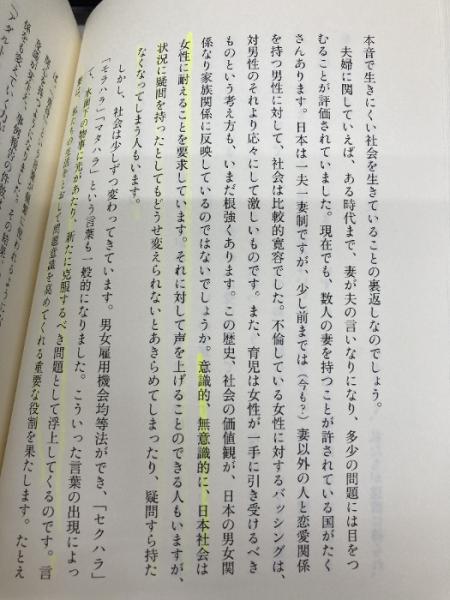 本音で生きにくい社会を生きていることの裏返しなのでしょう。
夫婦に関していえば、ある時代まで、妻が夫の言いなりになり、多少の問題には目をつ
むることが評価されていました。現在でも、数人の妻を持つことが許されている国がたく
さんあります。日本は一夫一妻制ですが、少し前までは（今も？）妻以外の人と恋愛関係
を持つ男性に対して、社会は比較的寛容でした。不倫している女性に対するバッシングは、
対男性のそれより応々にして激しいものです。また、育児は女性が一手に引き受けるべき
ものという考え方も、いまだ根強くあります。この歴史、社会の価値観が、日本の男女関
係なり家族関係に反映しているのではないでしょうか。意識的、無意識的に、日本社会は
女性に耐えることを要求しています。それに対して声を上げることのできる人もいますが、
状況に疑問を持ったとしてもどうせ変えられないとあきらめてしまったり、疑問すら持た
なくなってしまう人もいます。
しかし、社会は少しずつ変わってきています。男女雇用機会均等法ができ、「セクハラ」
「モラハラ」「マタハラ」という言葉も一般的になりました。こういった言葉の出現によっ
て、水面下の物事に光があたり、新たに克服するべき問題として浮上してくるのです。言
葉は、私たちの生活をとおして問題意識を高めてくれる重要な役割を果たします。たとえ